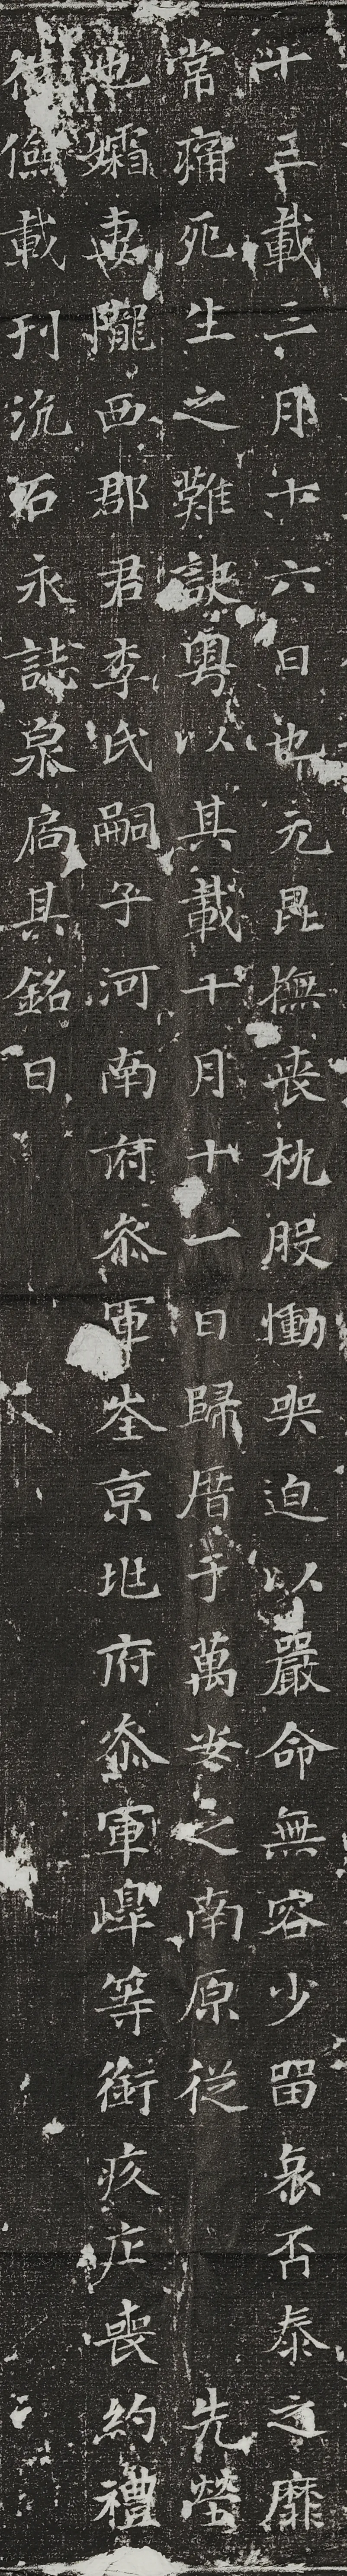 十三載三月十六日也元昆撫喪枕股慟哭迫以嚴命無容少留哀否泰之靡
常痛死生之難訣粤以其載十月十一日歸厝于萬安之南原從先塋
也孀妻隴西郡君李氏嗣子河南府叅軍峑京地府叅軍嶂等銜疚茫喪約禮
儉載刊沉石永誌泉扃其銘曰